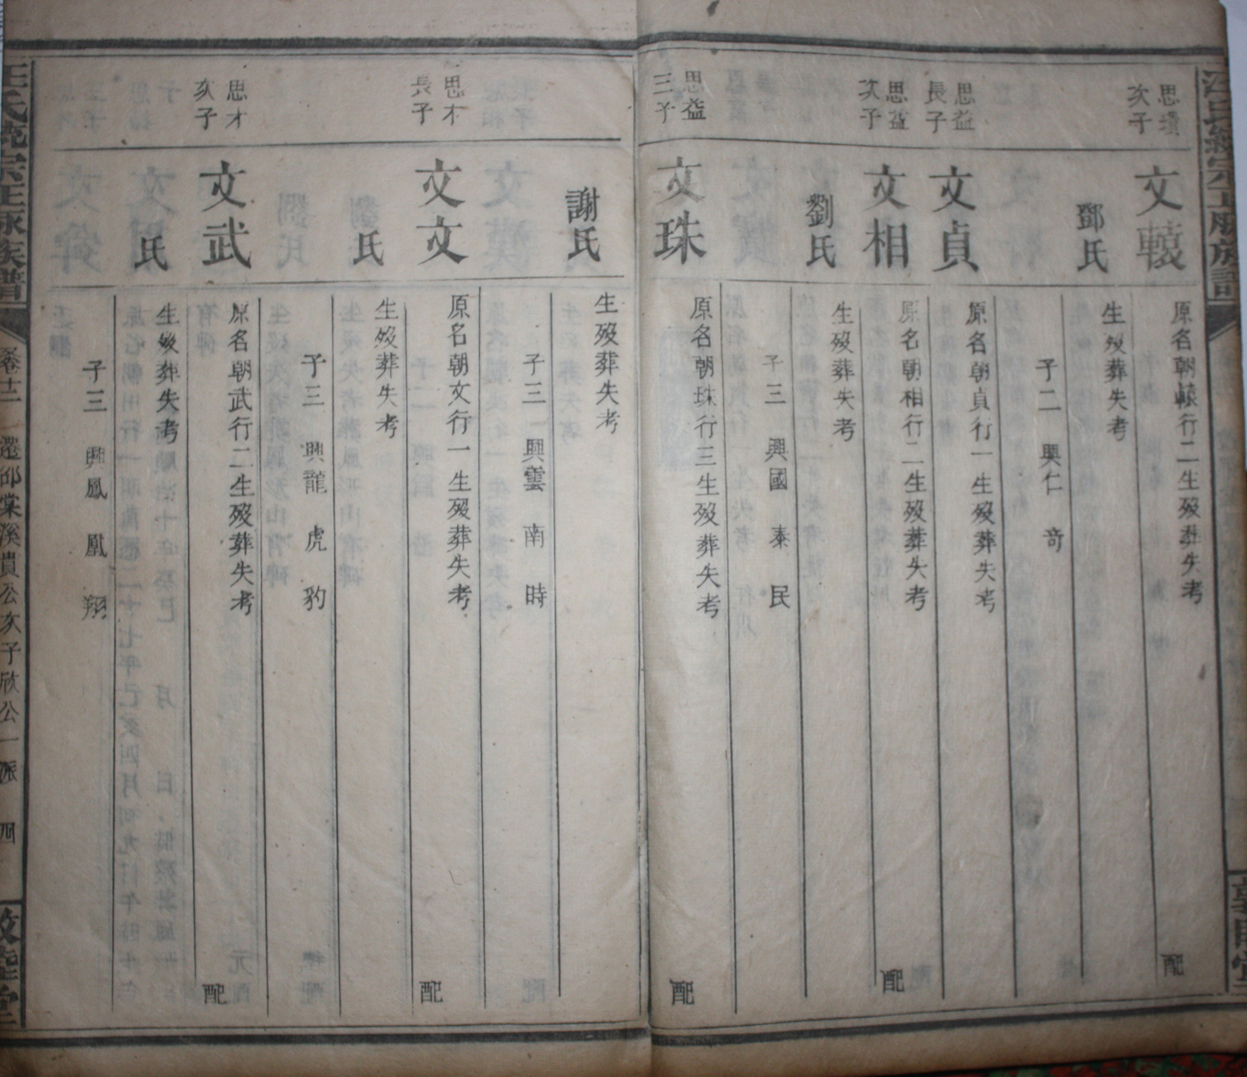 思瓚
次子
文轅
原名朝轅行二生歿葬失考
配
鄧氏
生歿葬失考
子二 興仁 奇
思益
長子
文貞
原名朝貞行一生歿葬失考
思益
次子
文相
原名朝相行二生歿葬失考
配
劉氏
生歿葬失考
子三 興國 泰 民
思益
三子
文珠
原名朝珠行三生歿葬失考
配
謝氏
生歿葬失考
子三 興雲 南 時
思才
長子
文文
原名朝文行一生歿葬失考
配
氏
生歿葬失考
子三 興龍 虎 豹
思才
次子
文武
原名朝武行二生歿葬失考
配
氏
生歿葬失考
子三 興鳳 凰 翔
汪氏統宗正脉族譜
卷十二 遷邱棠溪貴公次子欣公一派 四